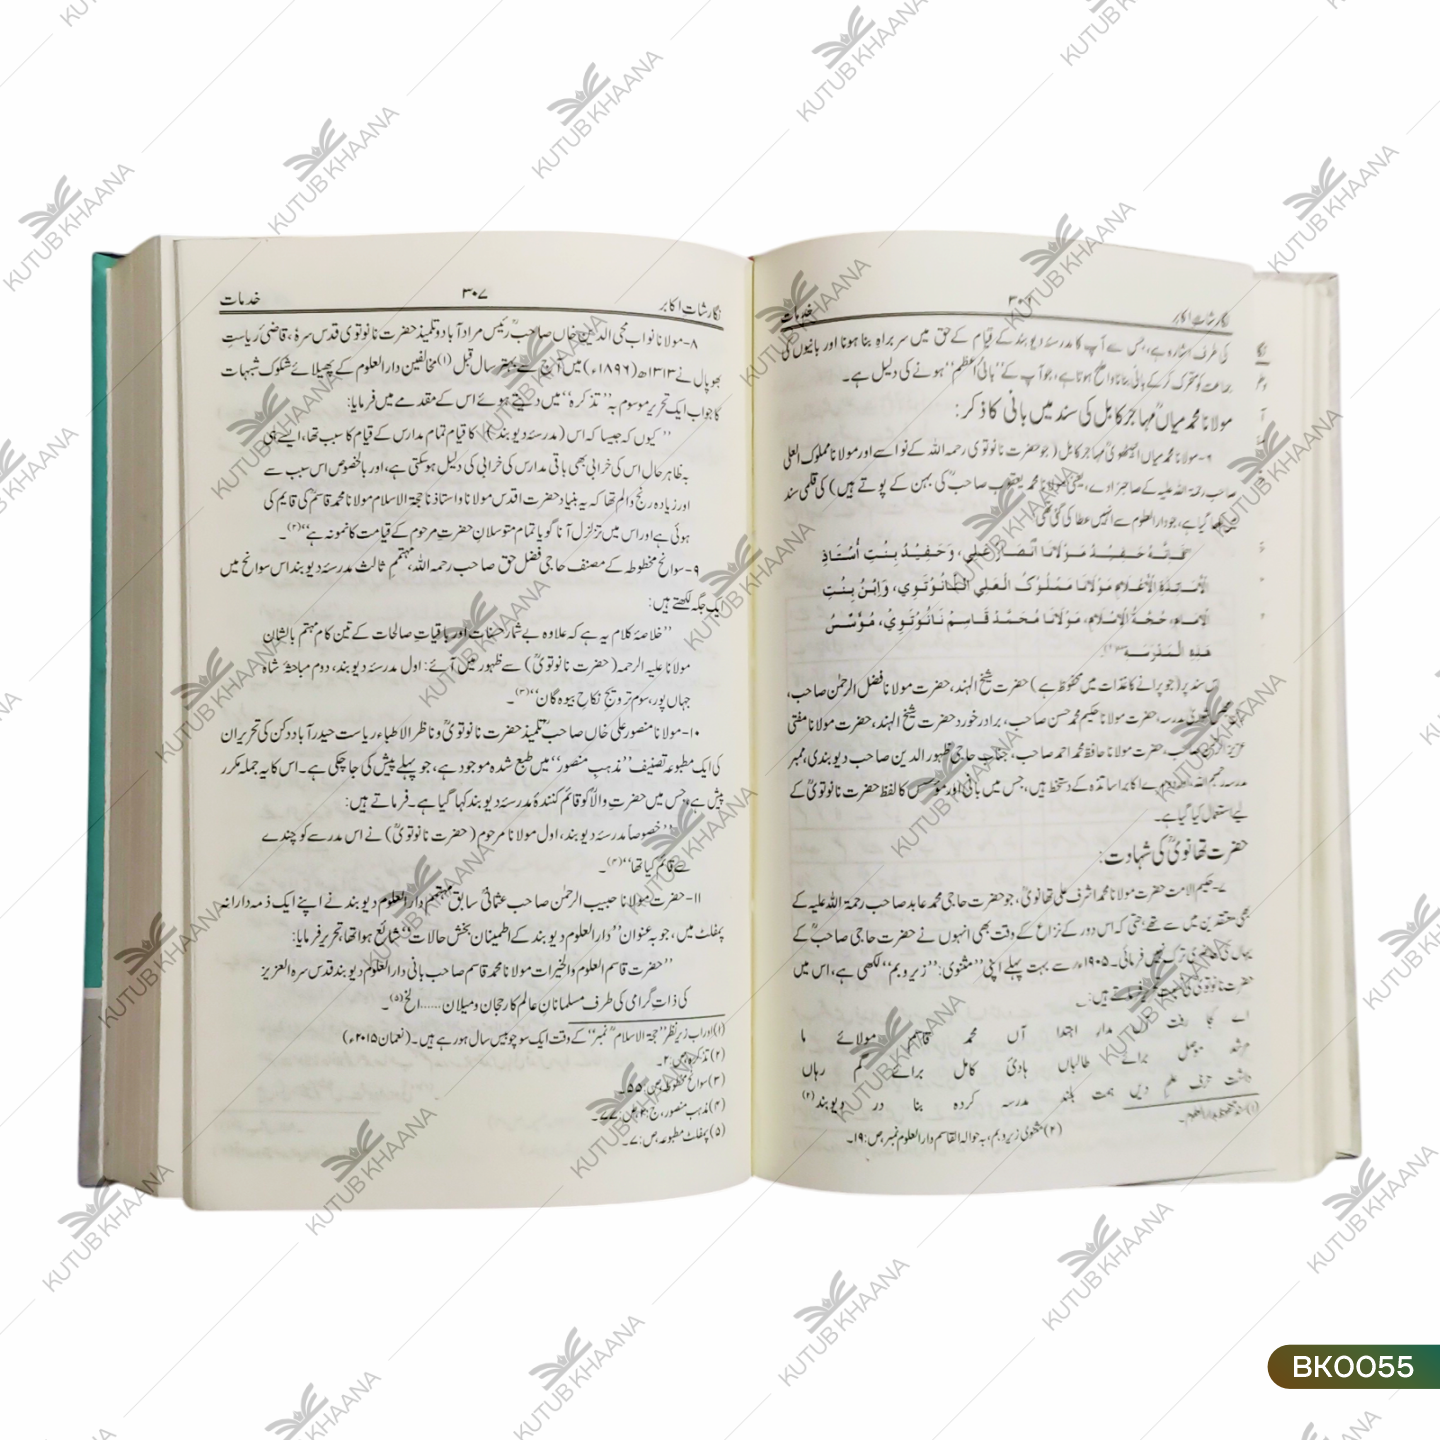 نگارشاتِ اکابر
خدمات
کی طرف اشارہ ہے، جس سے آپ کا مدرسۂ دیوبند کے قیام کے حق میں سربراہِ بنا ہونا اور بانیوں کی
جماعت کو متحرک کر کے بانی بنانا واضح ہوتا ہے، جو آپ کے ”بانیٔ اعظم“ ہونے کی دلیل ہے۔
مولانا محمد میاںؒ مہاجرِ کابل کی سند میں بانی کا ذکر:
۶-مولانا محمد میاں انبیٹھویؒ مہاجرِ کابل (جو حضرت نانوتوی رحمہ اللہ کے نواسے اور مولانا مملوک العلی
صاحب رحمۃ اللہ علیہ کے صاحبزادے، یعنی مولانا محمد یعقوب صاحبؒ کی بہن کے پوتے ہیں) کی قلمی سند
میں لکھا گیا ہے، جو دارالعلوم سے انہیں عطا کی گئی تھی:
”فَإِنَّهُ حَفِيْدُ مَوْلَانَا أَنْصَارْ عَلِي، وَحَفِيْدُ بِنْتِ أُسْتَاذِ
الْأَسَاتِذَةِ الْأَعْلَامِ مَوْلَانَا مَمْلُوْكُ الْعَلِي النَّانُوْتَوِي، وَابْنُ بِنْتِ
الْاِمَامِ، حُجَّةُ الْاِسْلَامِ، مَوْلَانَا مُحَمَّدْ قَاسِمْ نَانُوْتَوِيْ، مُؤَسِّسُ
هٰذِهِ الْمَدْرَسَةِ“(۱)۔
اس سند پر (جو پرانے کاغذات میں محفوظ ہے) حضرت شیخ الہند، حضرت مولانا فضل الرحمٰن صاحب،
مدرسہ، حضرت مولانا حکیم محمد حسن صاحب، برادرِ خورد حضرت شیخ الہند، حضرت مولانا مفتی
عزیز الرحمٰن صاحب، حضرت مولانا حافظ محمد احمد صاحب، جناب حاجی ظہور الدین صاحب دیوبندی، ممبر
مدرسہ رحمہم اللہ اکابر اساتذہ کے دستخط ہیں، جس میں بانی اور مؤسس کا لفظ حضرت نانوتویؒ کے
لیے استعمال کیا گیا ہے۔
حضرت تھانویؒ کی شہادت:
۷-حکیم الامت حضرت مولانا محمد اشرف علی تھانویؒ، جو حضرت حاجی محمد عابد صاحب رحمۃ اللہ علیہ کے
بھی معتقدین میں سے تھے؛ حتی کہ اس دور کے نزاع کے وقت بھی انہوں نے حضرت حاجی صاحبؒ کے
یہاں کی حاضری ترک نہیں فرمائی۔ ۱۹۰۵ء سے بہت پہلے اپنی ”مثنوی: ”زیر و بم“ لکھی ہے، اس میں
حضرت نانوتویؒ کی نسبت تحریر فرماتے ہیں:
اے کا رفت مدار اہتدا آں محمد قاسم مولائے ما
مرشد موصل برائے طالباں ہادیٔ کامل برائے گم رہاں
داشت حرف علم دیں ہمت بلند مدرسہ کردہ بنا در دیوبند(۲)
(۱) سند محفوظ دار العلوم۔
(۲) مثنوی زیر و بم، بہ حوالہ القاسم دارالعلوم نمبر، ص:۱۹۔
نگارشاتِ اکابر
۳۰۷
خدمات
۸-مولانا نواب محی الدین خاں صاحبؒ رئیس مرادآباد و تلمیذ حضرت نانوتوی قدس سرہ، قاضیٔ ریاستِ
بھوپال نے ۱۳۱۳ھ (۱۸۹۶ء) میں آج سے بہتر سال قبل (۱) مخالفین دارالعلوم کے پھیلائے شکوک شبہات
کا جواب ایک تحریر موسوم بہ ”تذکرہ“ میں دیتے ہوئے اس کے مقدمے میں فرمایا:
”کیوں کہ جیسا کہ اس (مدرسۂ دیوبند) کا قیام تمام مدارس کے قیام کا سبب تھا، ایسے ہی
بہ ظاہر حال اس کی خرابی بھی باقی مدارس کی خرابی کی دلیل ہوسکتی ہے، اور بالخصوص اس سبب سے
اور زیادہ رنج و الم تھا کہ یہ بنیاد حضرت اقدس مولانا و استاذنا حجۃ الاسلام مولانا محمد قاسمؒ کی قایم کی
ہوئی ہے اور اس میں تزلزل آنا گویا تمام متوسلانِ حضرتِ مرحوم کے قیامت کا نمونہ ہے“(۲)۔
۹-سوانح مخطوطہ کے مصنف حاجی فضل حق صاحب رحمہ اللہ، مہتممِ ثالث مدرسۂ دیوبند اس سوانح میں
ایک جگہ لکھتے ہیں:
”خلاصۂ کلام یہ ہے کہ علاوہ بے شمار حسنات اور باقیاتِ صالحات کے تین کام مہتم بالشان
مولانا علیہ الرحمہ (حضرت نانوتویؒ) سے ظہور میں آئے: اول مدرسۂ دیوبند، دوم مباحثۂ شاہ
جہاں پور، سوم ترویجِ نکاحِ بیوہ گان“(۳)۔
۱۰-مولانا منصور علی خاں صاحبؒ تلمیذ حضرت نانوتویؒ و ناظر الاطباء ریاست حیدرآباد دکن کی تحریراں
کی ایک مطبوعہ تصنیف ”مذہبِ منصور“ میں طبع شدہ موجود ہے، جو پہلے پیش کی جاچکی ہے۔ اس کا یہ جملہ مکرر
پیش ہے، جس میں حضرتِ والاؒ کو قائم کنندۂ مدرسۂ دیوبند کہا گیا ہے۔ فرماتے ہیں:
”خصوصاً مدرسۂ دیوبند، اول مولانا مرحوم (حضرت نانوتویؒ) نے اس مدرسے کو چندے
سے قائم کیا تھا“(۴)۔
۱۱-حضرت مولانا حبیب الرحمٰن صاحب عثمانیؒ سابق مہتمم دارالعلوم دیوبند نے اپنے ایک ذمہ دارانہ
پمفلٹ میں، جو بہ عنوان ”دارالعلوم دیوبند کے اطمینان بخش حالات“ شائع ہوا تھا، تحریر فرمایا:
”حضرت قاسم العلوم والخیرات مولانا محمد قاسم صاحب بانی دارالعلوم دیوبند قدس سرہ العزیز
کی ذاتِ گرامی کی طرف مسلمانانِ عالم کا رجحان و میلان ...... الخ(۵)
(۱) اور اب زیرِ نظر ”حجۃ الاسلام نمبر“ کے وقت ایک سو چوبیس سال ہورہے ہیں۔ (نعمان ۲۰۱۵ء)
(۲) تذکرہ، ص:۲۔
(۳) سوانح مخطوطہ، ص:۵۵۔
(۴) مذہب منصور، ج:۲، ص:۷۷۔
(۵) پمفلٹ مطبوعہ، ص:۷۔
KUTUB KHAANA
BK0055